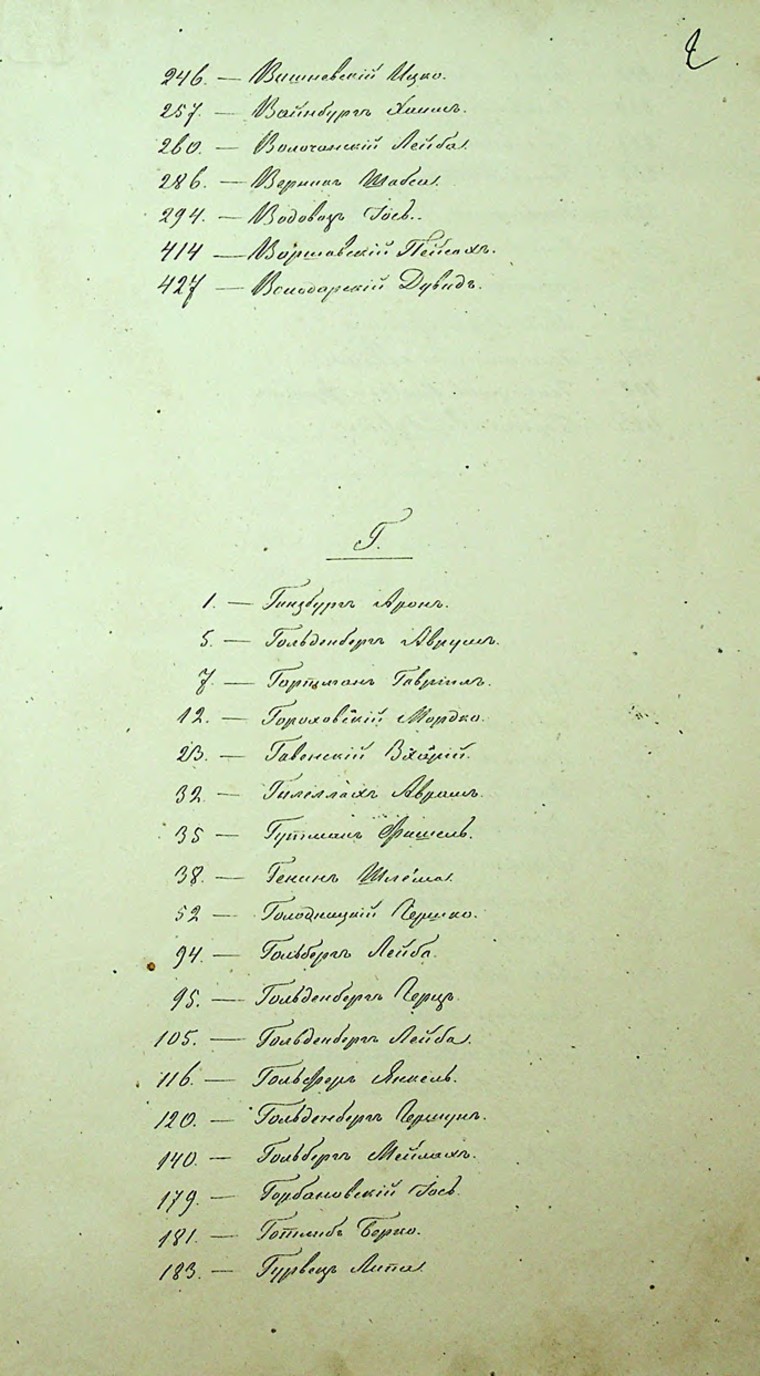 2
246. — Вишневскій Ицко.
257. — Вайнбургъ Хаимъ.
260. — Волочанскій Лейба.
286. — Верникъ Шабса.
294. — Водовозъ Іось.
414 — Варшавскій Пейсахъ.
427 — Володарскій Дувидъ.
Г.
1. — Гинзбургъ Аронъ.
5. — Гольденбергъ Аврумъ.
7. — Гортманъ Гавріилъ.
12. — Гороховскій Мордко.
23. — Гавенскій
32. — Аврамъ.
35 — Гутманъ Фишель.
38. — Генинъ Шлёма.
52 — Голодницкій Гершко.
94. — Гольбергъ Лейба.
95. — Гольденбергъ Герцъ.
105. — Гольденбергъ Лейба.
116. — Гольдферъ Янкель.
120. — Гольденбергъ Гершунъ.
140. — Гольбергъ Меймахъ.
179. — Горбановскій Іось.
181. — Готлибъ Берко.
183. — Гурвецъ Липа.